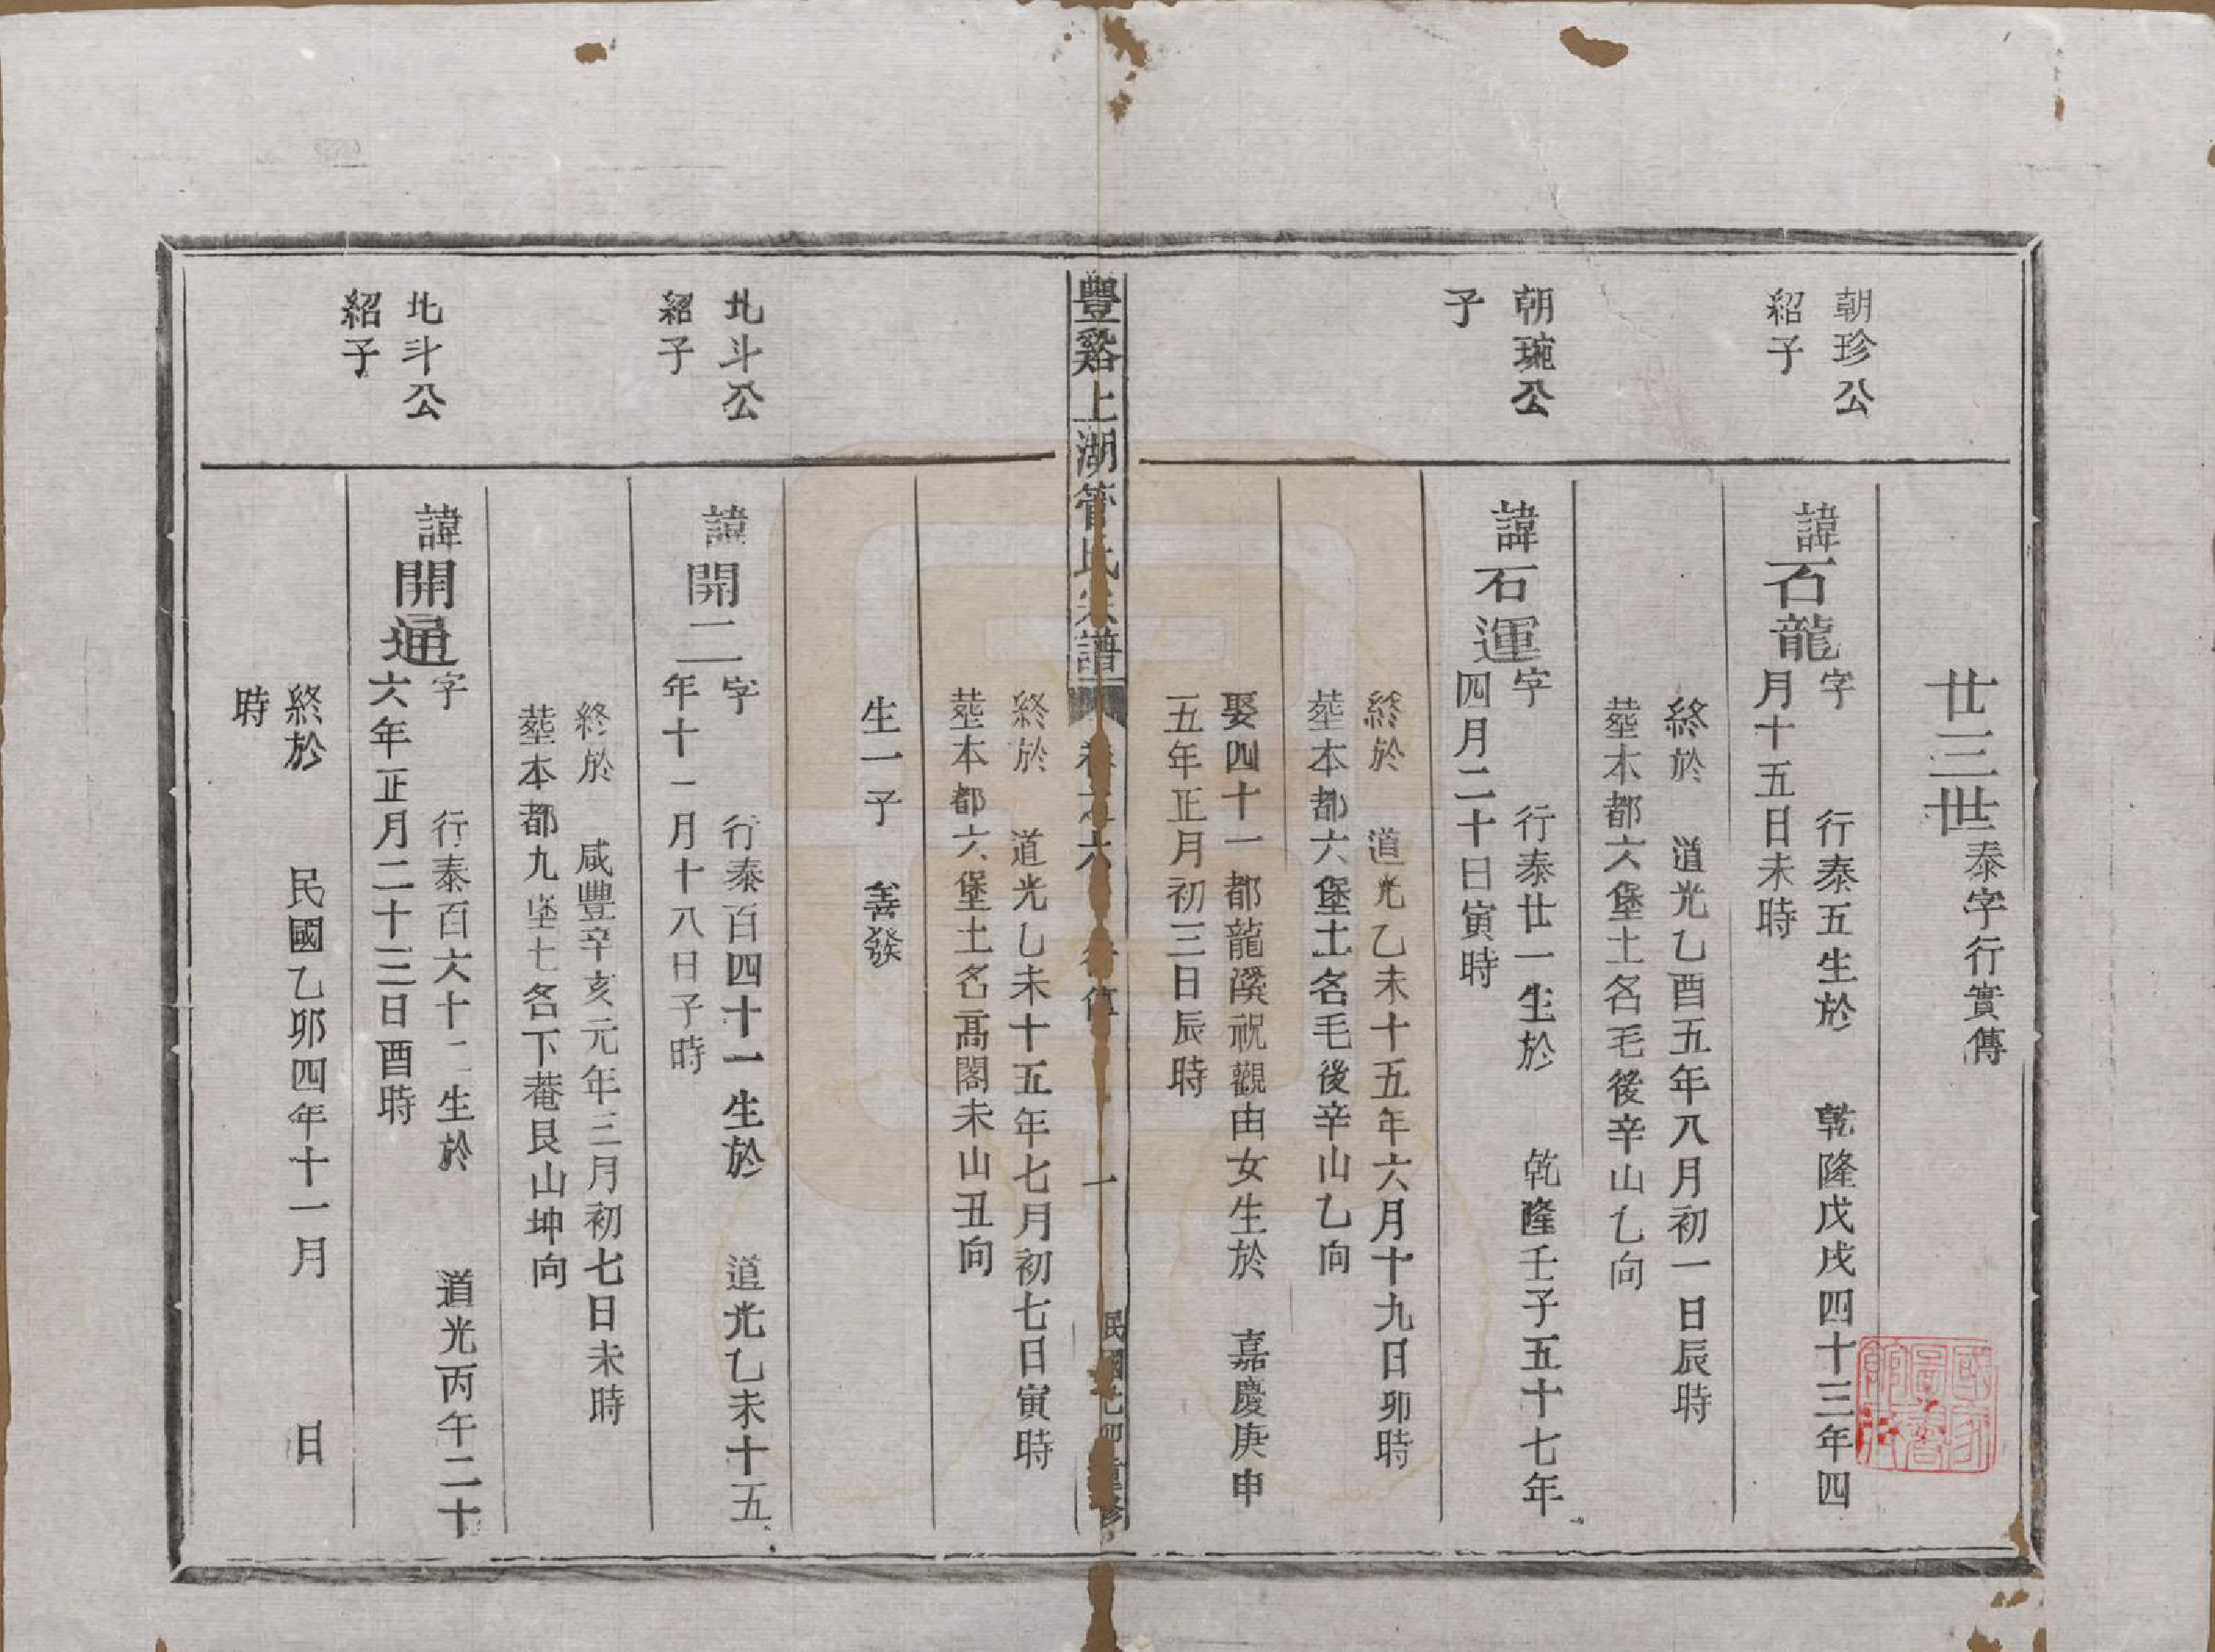 廿三世泰字行實傳
朝珍公
紹子
諱石龍字 行泰五生於 乾隆戊戌四十三年四
月十五日未時
終於 道光乙酉五年八月初一日辰時
塟本都六堡土名毛後辛山乙向
朝琬公
子
諱石運字 行泰廿一生於 乾隆壬子五十七年
四月二十日寅時
終於 道光乙未十五年六月十九日卯時
塟本都六堡土名毛後辛山乙向
娶四十一都龍溪祝觀由女生於 嘉慶庚申
五年正月初三日辰時
豐谿上湖管氏宗譜 卷之六 一 民國乙卯重修
終於 道光乙未十五年七月初七日寅時
塟本都六堡土名高閣未山丑向
生一子 善發
北斗公
紹子
諱開二字 行泰百四十一生於 道光乙未十五
年十一月十八日子時
終於 咸豐辛亥元年三月初七日未時
塟本都九堡七名下菴艮山坤向
北斗公
紹子
諱開通字 行泰百六十二生於 道光丙午二十
六年正月二十三日酉時
終於 民國乙卯四年十一月 日
時